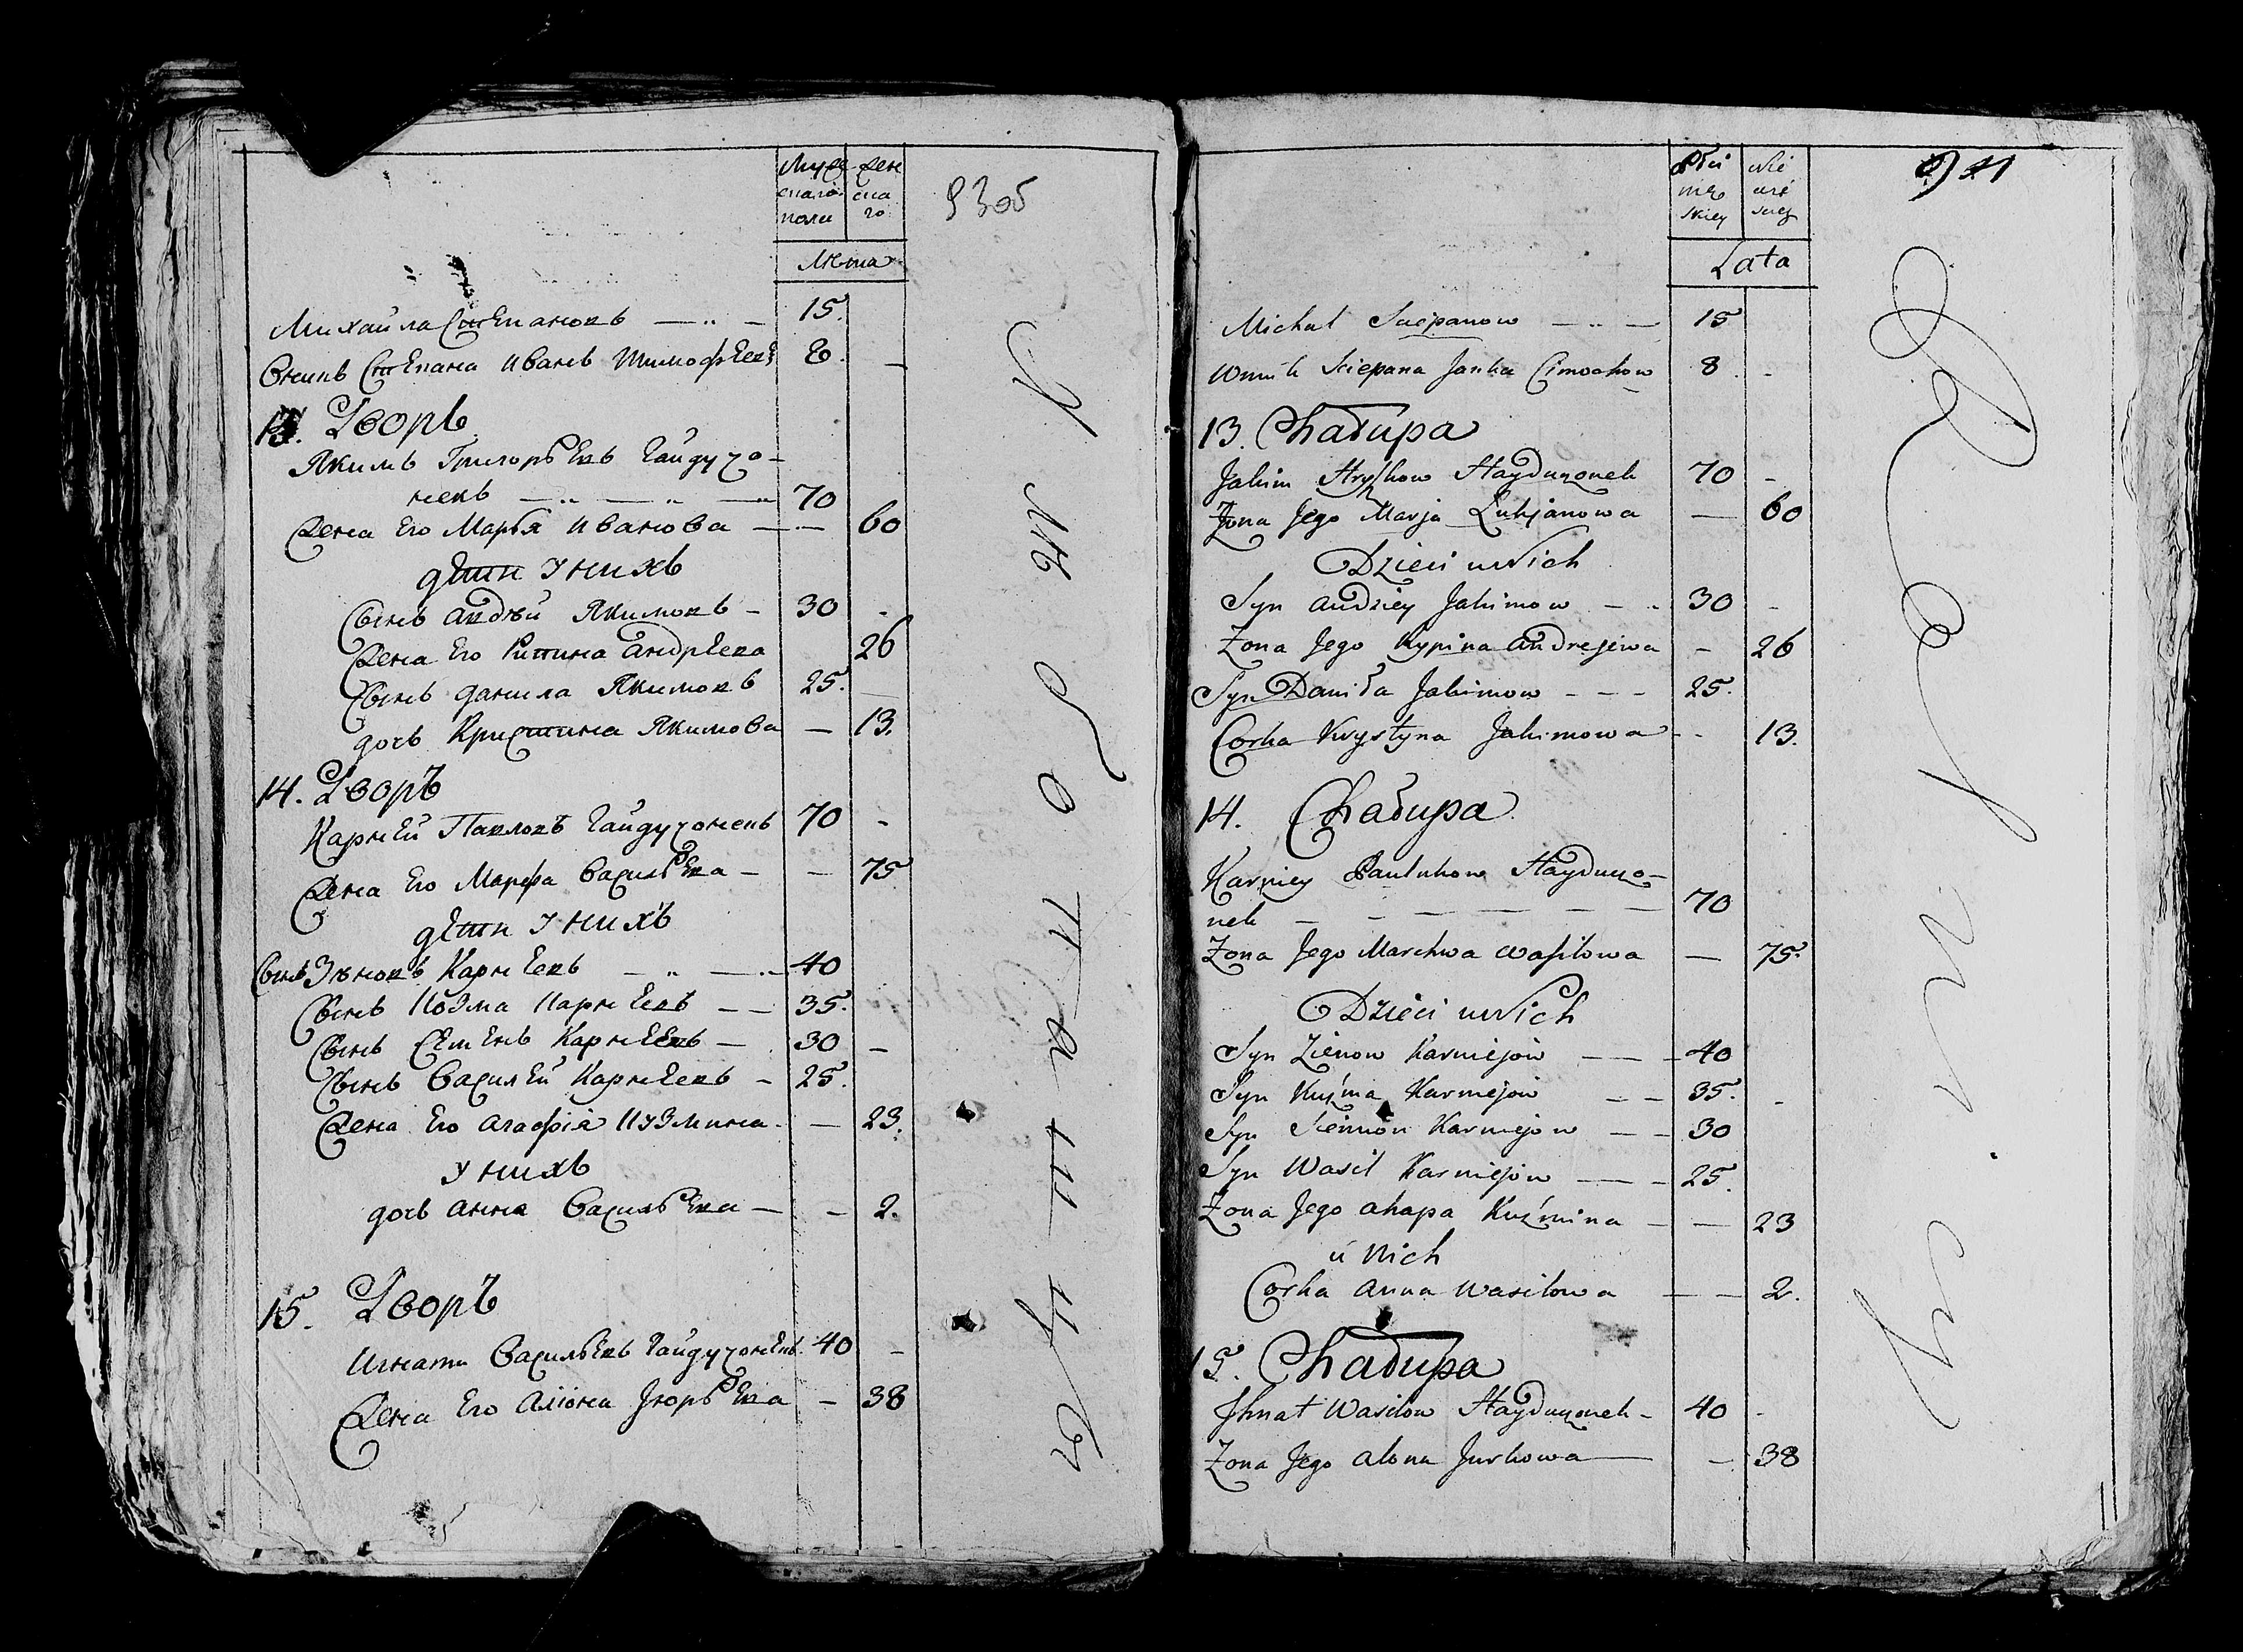 Муже
скаго
пола
Жен
ска
го
Лѣта
Михайла Степановъ — 15.
Внукъ Степана Иванъ Тимофѣевъ 8. —
13. Дворъ
Якимъ Григорьевъ Гайдучо-
некъ — 70
Жена Его Марья Иванова — 60
дѣти у нихъ
Сынъ Андрѣй Якимовъ - 30 -
Жена Его Андрѣева 26
Сынъ Данила Якимовъ 25. —
дочь Кристина Якимова — 13.
14. Дворъ
Карней Павловъ Гайдучонекъ 70 -
Жена Его Марфа Васильева - — 75
дѣти у нихъ
Сынъ Зѣновъ Карнеевъ — 40
Сынъ Козма Карнеевъ — 35.
Сынъ Семенъ Карнеевъ — 30 —
Сынъ Василей Карнеевъ - 25.
Жена Его Агафія Кузмина - — 23.
у нихъ
дочь Анна Васильева — - 2.
15. Дворъ
Игнати Васильевъ Гайдучонекъ. 40 -
Жена Его Аліона Юрьева - 38
Płci
męs
skiey
Lata
Michał Sciepanow — 15
Wnuk Sciepana Janka Cimochow 8. -
13. Chałupa
Jakim Hryszkow Hayduczonek 70 -
Żona Jego Marja Łukjanowa — 60
Dzieci u Nich
Syn Andziey Jakimow — 30 -
Żona Jego Kypina Andrejewa - 26
Syn Daniła Jakimow - - - 25.
Corka Krystyna Jakimowa - - 13.
14. Chałupa
Karniey Pautukow Hayduczo-
nek — 70
Żona Jego Marchwa Wasilowa — 75.
Dzieci u Nich
Syn Zienow Karniejow — 40
Syn Kuźma Karniejow — 35. -
Syn Siemion Karniejow — 30
Syn Wasil Karniejow — 25.
Żona Jego Ahapa Kuźmina - — 23
u Nich
Corka Anna Wasilowa — 2.
15. Chałupa
Jhnat Wasilow Hayduczonek - 40 -
Żona Jego Alona Jurkowa — 38